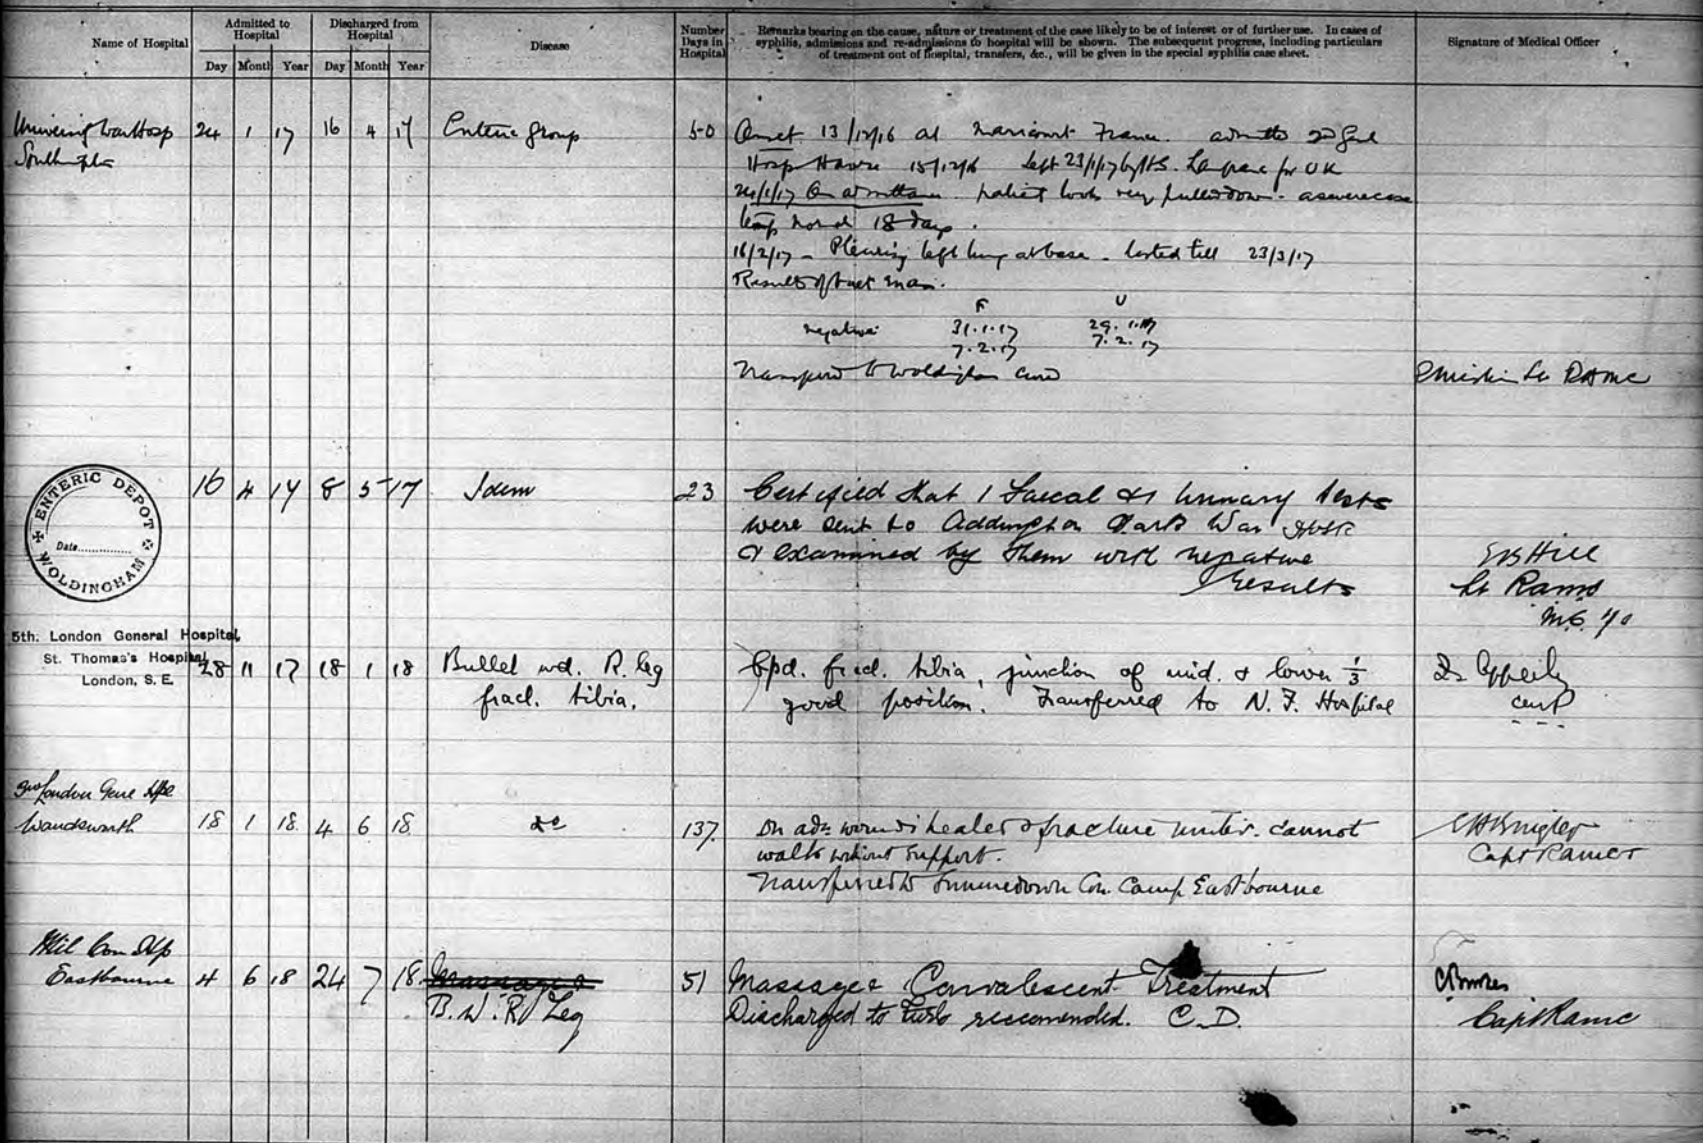 Name of Hospital
Admitted to Hospital
Discharged from Hospital
Day Month Year Day Month Year
Disease
Number Days in Hospital
Remarks bearing on the cause, nature or treatment of the case likely to be of interest or of further use. In cases of
syphilis, admissions and re-admissions to hospital will be shown. The subsequent progress, including particulars
of treatment out of hospital, transfers, &c., will be given in the special syphilis case sheet.
Signature of Medical Officer
24 1 17 16 4 17 Enteric group 50 Onset 13/12/16 at Maricourt France.
Hosp Havre 15/12/16 Left 23/1/17 for UK
24/1/17 On admittance patient looks very pulled down - a severe case
Temp normal 18 days.
16/2/17 - Pleurisy left lung at base - lasted till 23/3/17
Results of bact exam.
F U
negative 31.1.17 29.1.17
7.2.17 7.2.17
to Woldingham
RAMC
ENTERIC DEPOT
Date
WOLDINGHAM
16 4 17 8 5 17 Idem 23 Certified that 1 Faecal & 1 Urinary tests
were sent to Addington Park War Hosp
& examined by them with negative
results
Hill
Lt RAMC
5th. London General Hospital,
St. Thomas's Hospital
London, S. E.
28 11 17 18 1 18 Bullet wd. R. leg
fract. tibia.
Cpd. fract. tibia, junction of mid. & lower 1/3
good position. Transferred to N. F. Hospital
3rd London Gene
Wandsworth 18 1 18 4 6 18 do 137 On adm wounds healed & fracture united. Cannot
walk without support.
Transferred to Summerdown Con. Camp Eastbourne
Capt RAMCT
Mil Con Hp
Eastbourne 4 6 18 24 7 18 B.W. R/ Leg 51 Massage & Convalescent Treatment
Discharged to recomended. C.D.
Capt RAMC